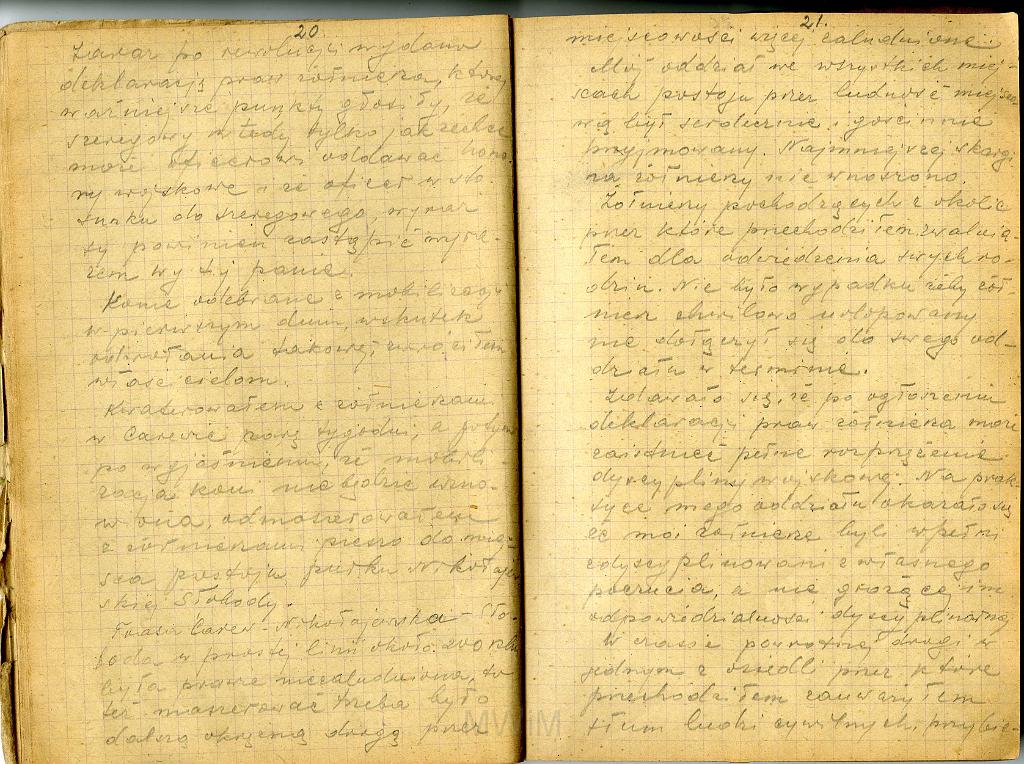 20.
Zaraz po rewolucji wydano
deklarację praw żołnierza, której
ważniejsze punkty głosiły, że
szeregowy wtedy tylko jak zechce
może oficerowi oddawać hono-
ry wojskowe i że oficer w sto-
sunku do szeregowego, wyraz
ty powinien zastąpić wyra-
zem wy i panie.
Konie odebrane z mobilizacji
w pierwszym dniu, wskutek
odwołania takowej zwróciłem
właścicielom.
Kwaterowałem z żołnierzami
w Carewie parę tygodni, a potym
po wyjaśnieniu, że mobili-
zacja koni nie będzie wzno-
wiona, odmaszerowałem
z żołnierzami pieszo do miej-
sca postoju pułku Nikołajew-
skiej Słobody.
Trasa Carew-Nikołajewska Sło-
boda w prostej linii około 200 klm
była prawie niezaludniona, to
też maszerować trzeba było
dalszą okrężną drogą przez
21.
miejscowości więcej zaludnione.
Mój oddział we wszystkich miej-
scach postoju przez ludność miejsco-
wą był serdecznie i gościnnie
przyjmowany. Najmniejszej skargi
na żołnierzy nie wnoszono.
Żołnierzy pochodzących z okolic
przez które przechodziłem zwalnia-
łem dla odwiedzenia swych ro-
dzin. Nie było wypadku żeby żoł-
nierz chwilowo urlopowany
nie dołączył się do swego od-
działu w terminie.
Zdawało się, że po ogłoszeniu
deklaracji praw żołnierza może
zaistnieć pełne rozprężenie
dyscypliny wojskowej. Na prak-
tyce mego oddziału okazało się
że moi żołnierze byli w pełni
zdyscyplinowani z własnego
poczucia, a nie grożącej im
odpowiedzialności dyscyplinarnej
W czasie powrotnej drogi w
jednym z osiedli przez które
przechodziłem zauważyłem
tłum ludzi cywilnych, przybie-
MWIM